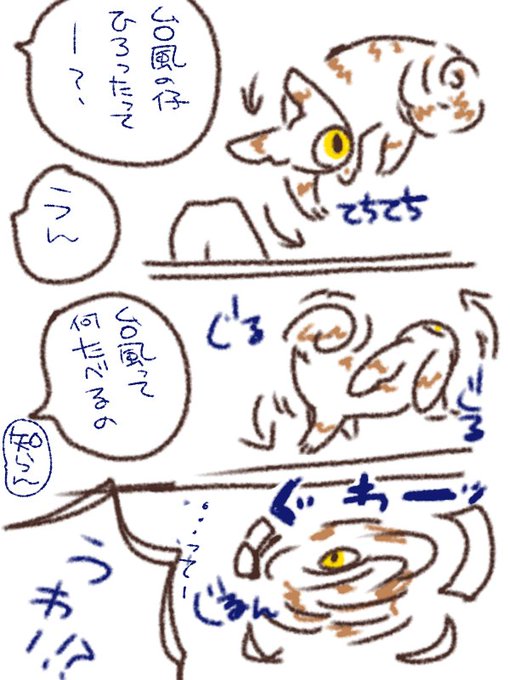 台風の仔
ひろったって
ー？、
てちてち
うん
じーる
じーる
台風って
何たべるの
知らん
ぐわーッ
…ってー
じるん
うわー!?